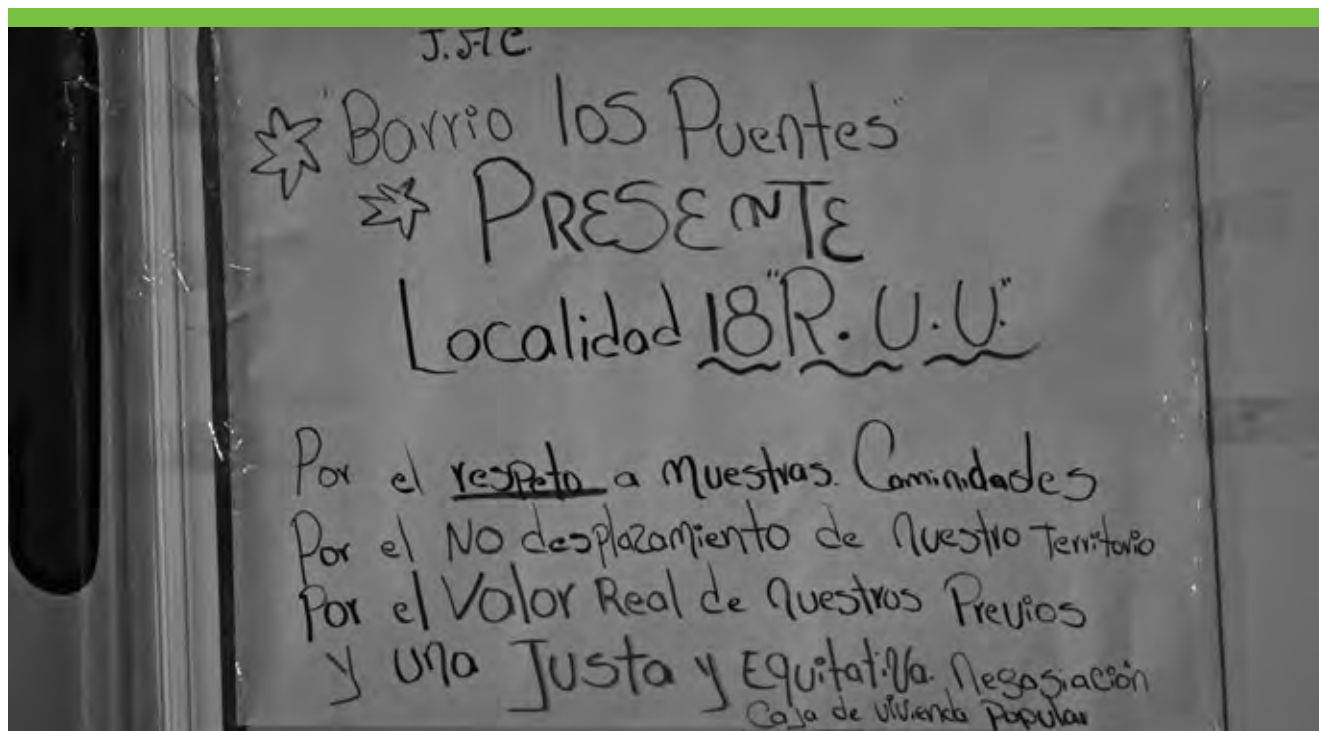 J.A.C.
"Barrio los Puentes"
PRESENTE
Localidad 18 "R.U.U."
Por el respeto a nuestras Comindades
Por el NO desplazamiento de nuestro Territorio
Por el Valor Real de nuestros Previos
y una Justa y Equitativa. Negosiación
Caja de vivienda Popular